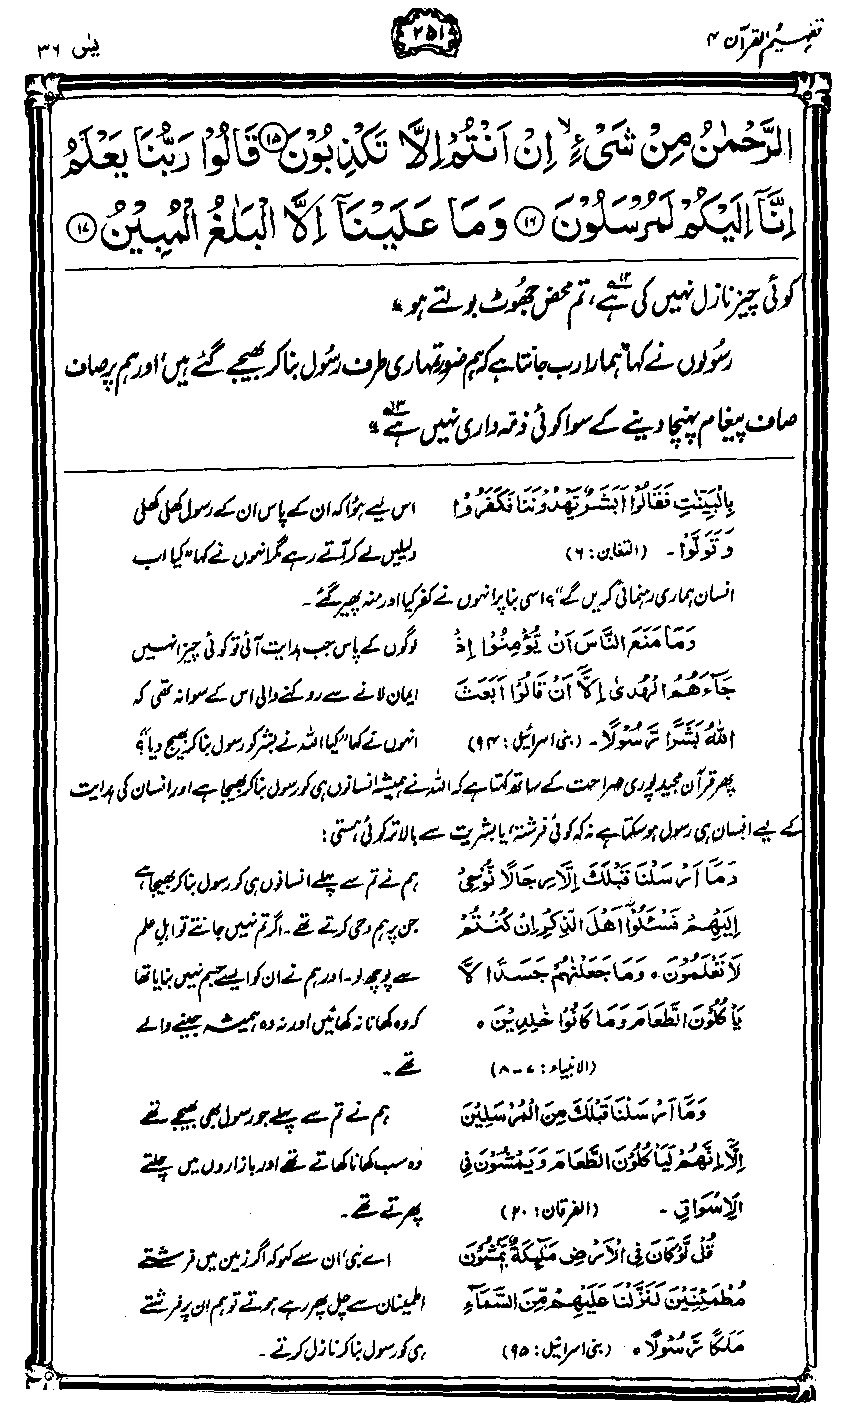 تفہیم القرآن ۴
۲۵۱
یٰسٓ ۳۶
الرَّحْمٰنُ مِنْ شَیْءٍ ۙ اِنْ اَنْتُمْ اِلَّا تَكْذِبُوْنَ ﴿۱۵﴾ قَالُوْا رَبُّنَا یَعْلَمُ
اِنَّاۤ اِلَیْكُمْ لَمُرْسَلُوْنَ ﴿۱۶﴾ وَمَا عَلَیْنَاۤ اِلَّا الْبَلٰغُ الْمُبِیْنُ ﴿۱۷﴾
کوئی چیز نازل نہیں کی ہے۱۲، تم محض جھوٹ بولتے ہو۔"
رسُولوں نے کہا "ہمارا رب جانتا ہے کہ ہم ضرور تمہاری طرف رسُول بنا کر بھیجے گئے ہیں، اور ہم پر صاف
صاف پیغام پہنچا دینے کے سوا کوئی ذمّہ داری نہیں ہے۱۳۔"
بِالْبَیِّنٰتِ فَقَالُوْۤا اَبَشَرٌ یَّهْدُوْنَنَا فَكَفَرُوْا
وَتَوَلَّوْا۔ (التغابن: ۶)
اس لیے ہُوا کہ ان کے پاس ان کے رسول کھلی کھلی
دلیلیں لے کر آتے رہے مگر انہوں نے کہا "کیا اب
انسان ہماری رہنمائی کریں گے"؟ اسی بنا پر انہوں نے کفر کیا اور منہ پھیر گئے۔
وَمَا مَنَعَ النَّاسَ اَنْ یُّؤْمِنُوْۤا اِذْ
جَآءَهُمُ الْهُدٰۤی اِلَّاۤ اَنْ قَالُوْۤا اَبَعَثَ
اللّٰهُ بَشَرًا رَّسُوْلًا۔ (بنی اسرائیل: ۹۴)
لوگوں کے پاس جب ہدایت آئی تو کوئی چیز انہیں
ایمان لانے سے روکنے والی اس کے سوا نہ تھی کہ
انہوں نے کہا "کیا اللہ نے بشر کو رسول بنا کر بھیج دیا"؟
پھر قرآن مجید پوری صراحت کے ساتھ کہتا ہے کہ اللہ نے ہمیشہ انسانوں ہی کو رسول بنا کر بھیجا ہے اور انسان کی ہدایت
کے لیے انسان ہی رسول ہو سکتا ہے نہ کہ کوئی فرشتہ، یا بشریت سے بالاتر کوئی ہستی:
وَمَاۤ اَرْسَلْنَا قَبْلَكَ اِلَّا رِجَالًا نُّوْحِیْۤ
اِلَیْهِمْ فَسْـَٔلُوْۤا اَهْلَ الذِّكْرِ اِنْ كُنْتُمْ
لَا تَعْلَمُوْنَ ۰ وَمَا جَعَلْنٰهُمْ جَسَدًا لَّا
یَاْكُلُوْنَ الطَّعَامَ وَمَا كَانُوْا خٰلِدِیْنَ ۰
(الانبیاء: ۷-۸)
ہم نے تم سے پہلے انسانوں ہی کو رسول بنا کر بھیجا ہے
جن پر ہم وحی کرتے تھے۔ اگر تم نہیں جانتے تو اہلِ علم
سے پوچھ لو۔ اور ہم نے ان کو ایسے جسم نہیں بنایا تھا
کہ وہ کھانا نہ کھائیں اور نہ وہ ہمیشہ جینے والے
تھے۔
وَمَاۤ اَرْسَلْنَا قَبْلَكَ مِنَ الْمُرْسَلِیْنَ
اِلَّاۤ اِنَّهُمْ لَیَاْكُلُوْنَ الطَّعَامَ وَیَمْشُوْنَ فِی
الْاَسْوَاقِ۔ (الفرقان: ۲۰)
ہم نے تم سے پہلے جو رسول بھی بھیجے تھے
وہ سب کھانا کھاتے تھے اور بازاروں میں چلتے
پھرتے تھے۔
قُلْ لَّوْ كَانَ فِی الْاَرْضِ مَلٰٓئِكَةٌ یَّمْشُوْنَ
مُطْمَئِنِّیْنَ لَنَزَّلْنَا عَلَیْهِمْ مِّنَ السَّمَآءِ
مَلَكًا رَّسُوْلًا ۰ (بنی اسرائیل: ۹۵)
اے نبی، ان سے کہو کہ اگر زمین میں فرشتے
اطمینان سے چل پھر رہے ہوتے تو ہم ان پر فرشتے
ہی کو رسول بنا کر نازل کرتے۔